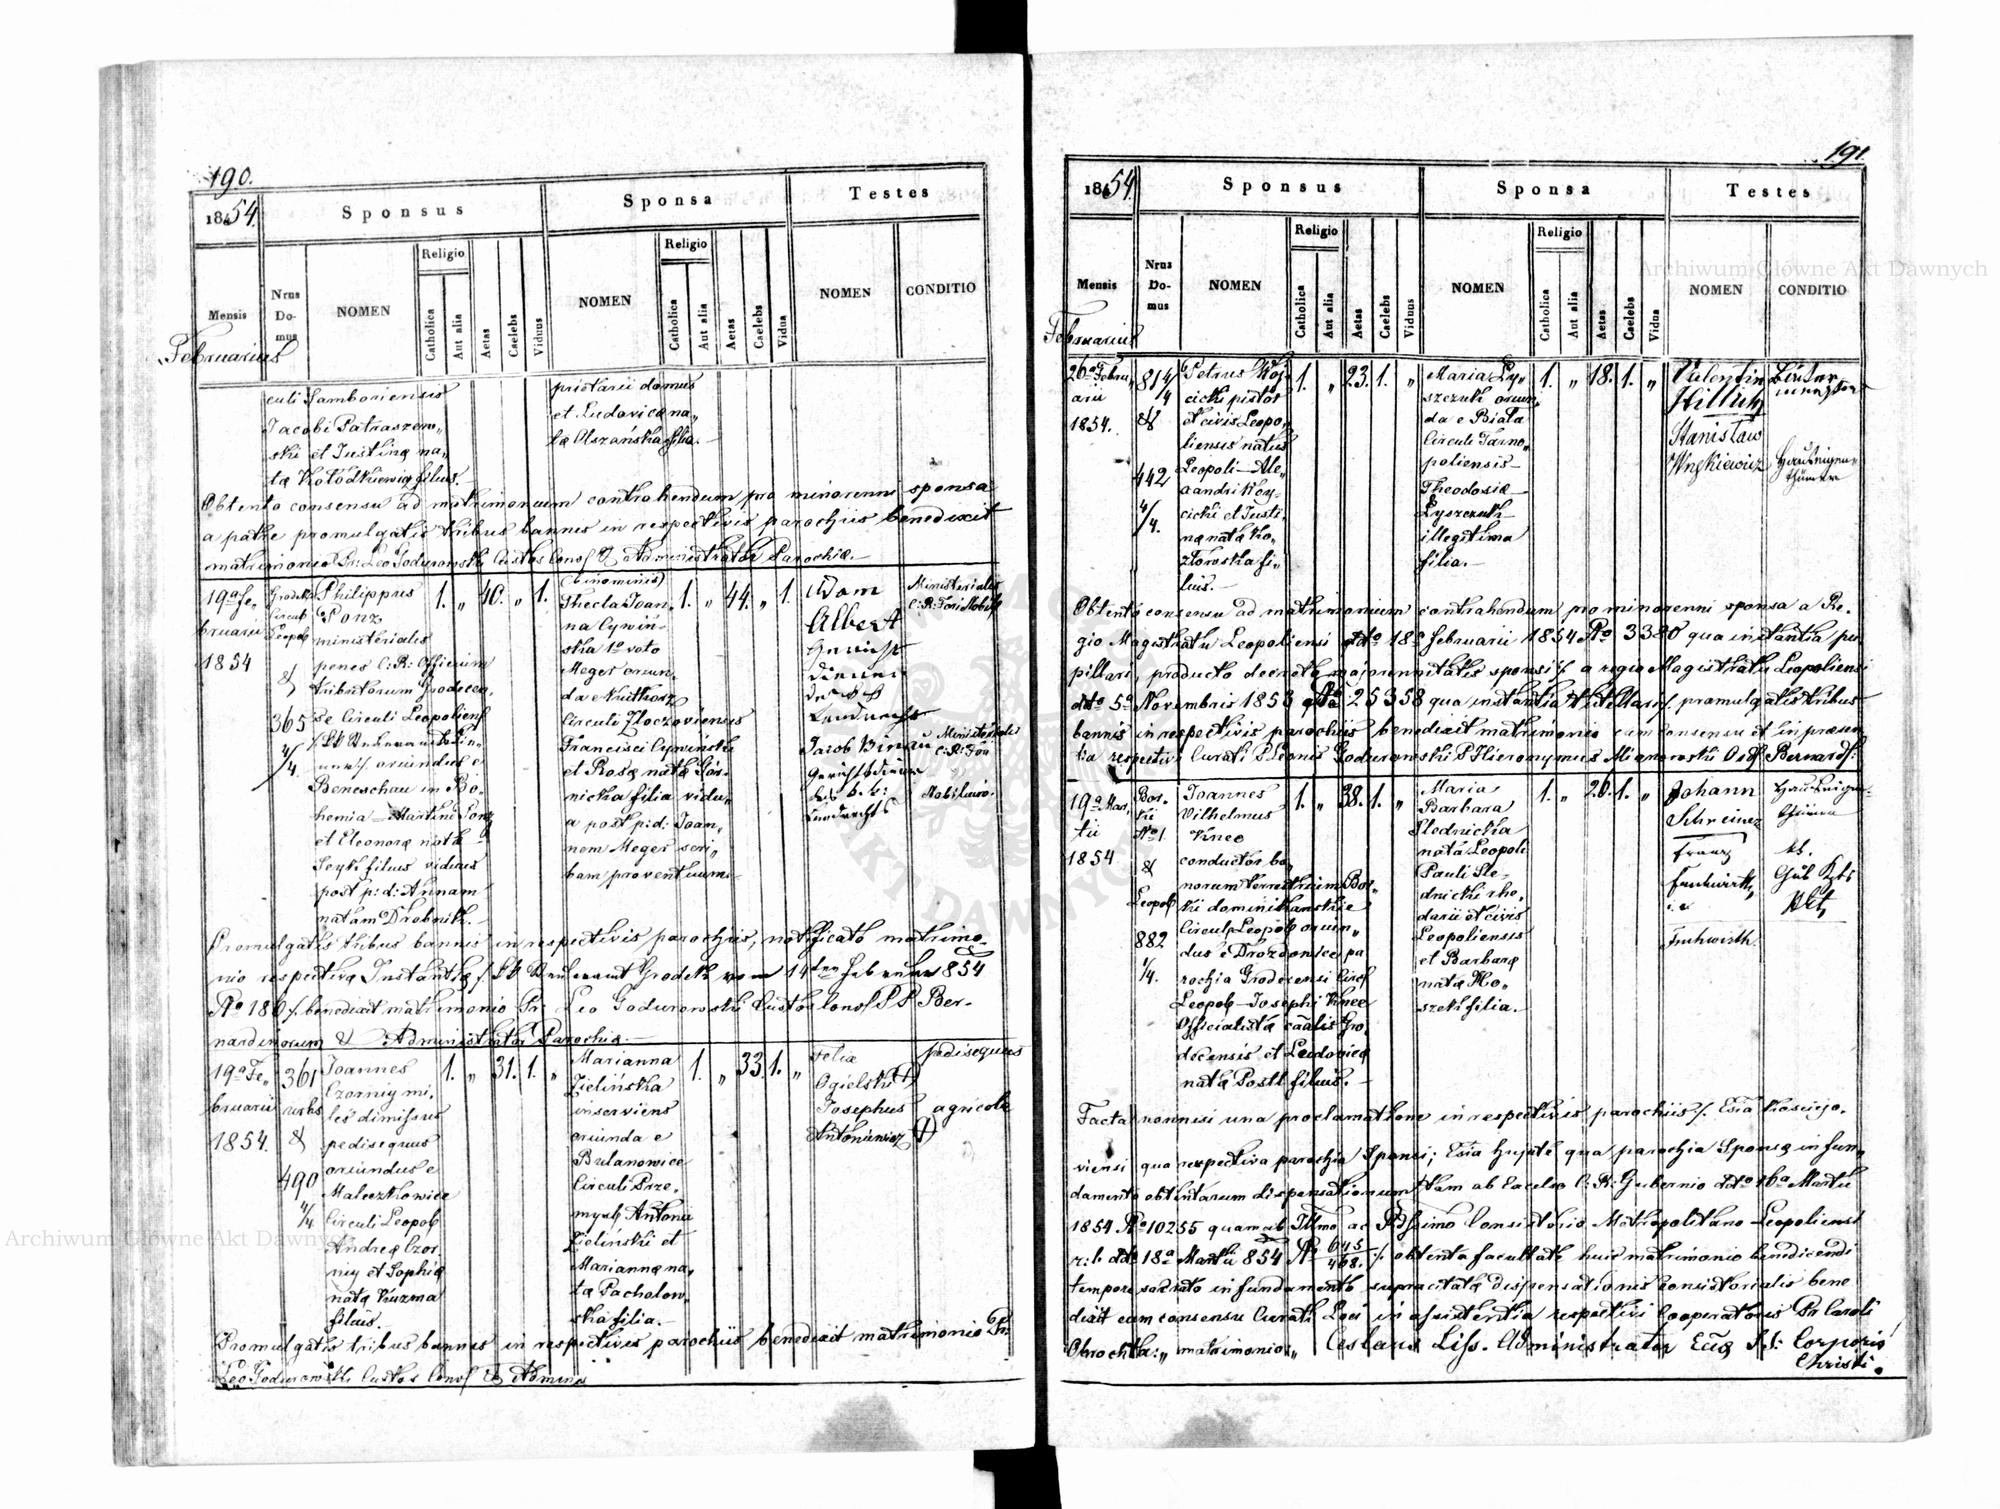 190.
1854.
Sponsus
Sponsa
Testes
Religio
Religio
Mensis
Nrus Domus
NOMEN
Catholica
Aut alia
Aetas
Caelebs
Viduus
NOMEN
Catholica
Aut alia
Aetas
Caelebs
Vidua
NOMEN
CONDITIO
Februarius
culi Samboriensis
Jacobi Patraszew„
ski et Justinę na„
tę Kołodkiewicz filius.
prietarii domus
et Ludovicę na„
tę Olszańska filia.
Obtento consensu ad matrimonium contrahendum pro minorenni sponsa
a patre promulgatis tribus bannis in respectivis parochiis benedixit
matrimonio Fr: Leo Godurowski Custos Conv & Administrator Parochię.
19a Fe„
bruarii
1854
Grodek
Circul
Leopol
&
365
4/4
Philippus
Ponz
ministeriales
penes C: R: Officium
tributorum Grodecen„
se Circuli Leopoliens
oriundus e
Beneschau in Bo„
hemia Martini Ponz
et Eleonorę natę
filius viduus
post p: d: Annam
natam Drobnik.
1. „ 40. „ 1.
(binominis)
Thecla Joan„
na Cywiń„
ska 1o voto
Meger oriun„
da e
Circuli Złoczoviensis
Francisci Cywiński
et Rosę natę Gór„
nicka filia vidu„
a post p: d: Joan„
nem Meger scri„
bam proventuum
1. „ 44. „ 1.
Adam
Albert
Gerichts
diener
des
Landrechts
Ministeriales
C: R: Fori Nobil
Jacob Binau
Gerichtsdiener
des k. k:
Landrechts
Ministeriales
C: R: Fori
Nobilium.
Promulgatis tribus bannis in respectivis parochiis, notificato matrimo„
nio respectivę Instantię Grodek vom 14ten Februar 854
No 186 /. benedixit matrimonio Fr: Leo Godurowski Custos Conv P P Ber„
nardinorum & Administrator Parochię.
19a Fe„
bruarii
1854.
361
urbs
&
490
4/4
Joannes
Czorniy mi„
les dimissus
pedisequus
oriundus e
Maleczkowice
Circuli Leopol
Andreę Czor„
niy et Sophię
natę Kuzma
filius.
1. „ 31. 1. „
Marianna
Zielińska
inserviens
oriunda e
Bulanowice
Circuli Prze„
mysl Antonii
Zieliński et
Mariannę na„
tę Pacholow„
ska filia.
1. „ 33. 1. „
Felix
Ogielski +
pedisequus
Josephus
Antoniewicz +
agricola
Promulgatis tribus bannis in respectivis parochiis benedixit matrimonio Fr:
Leo Godurowski Custos Conv & Admins
191.
1854.
Sponsus
Sponsa
Testes
Religio
Religio
Mensis
Nrus Domus
NOMEN
Catholica
Aut alia
Aetas
Caelebs
Viduus
NOMEN
Catholica
Aut alia
Aetas
Caelebs
Vidua
NOMEN
CONDITIO
Februarius
26a Febru„
arii
1854.
814
4/4
&
442
4/4.
Petrus Koy„
cicki pistor
et civis Leopo„
liensis natus
Leopoli Ale„
xandri Koy„
cicki et Justi„
nę natę Ko„
złowska fi„
lius.
1. „ 23. 1. „
Maria Ly„
szczuk oriun„
da e Biała
Circuli Tarno„
poliensis
Theodosię
Lyszczuk
illegitima
filia.
1. „ 18. 1. „
Valentin
Hillich
Bäcker
meister
Stanisław
Węgkiewicz
Hauseigen„
thümer
Obtento consensu ad matrimonium contrahendum pro minorenni sponsa a Re„
gio Magistratu Leopoliensi ddto 18a februarii 1854 No 3380 qua instantia pu„
pillari, producto decreto majorennitatis sponsi /. a regio Magistratu Leopoliensi
ddto 5a Novembris 1853 No 25358 qua instantia /. promulgatis tribus
bannis in respectivis parochiis benedixit matrimonio cum consensu et in præsen„
tia respectivi Curati P Leonis Godurowski P Hieronymus Mianowski Ord Bernard:
19a Mar„
tii
1854
Bor„
ki
No 1.
&
Leopol
882
1/4.
Joannes
Vilhelmus
Knee
conductor bo„
norum terrestrium Bor„
ki dominikanskie
Circul Leopol oriun„
dus e Drozdowice pa
rochia Grodecensi Circ
Leopol Josephi Knee
Officialistę cãalis Gro
decensis et Ludovicę
natę Postl filius.
1. „ 38. 1. „
Maria
Barbara
Slednicka
nata Leopoli
Pauli Sle„
dnicki rho„
darii et civis
Leopoliensis
et Barbarę
natę Ko„
szek filia.
1. „ 26. 1. „
Johann
Schreiner
Hauseigen„
thümer
Franz
Fruhwirth.
Facta nonnisi una proclamatione in respectivis parochiis /. Ecĩa Kosciejo„
viensi qua respectiva parochia Sponsi; Ecĩa hujate qua parochia Sponsę in fun„
damento obtentarum dispensationum tam ab Excelso C: R: Gubernio ddto 16a Martii
1854 No 10255 quam ab Illmo ac Rdssimo Consistorio Metropolitano Leopoliensi
r: l: ddto 18a Martii 854 No 645/468. /. obtenta facultate huic matrimonio benedicendi
tempore sacrato in fundamento supracitatę dispensationis Consistorialis bene
dixit cum consensu Curati Loci in assistentia respectivi Cooperatoris Fr Caroli
Obrochta: „ matrimonio „ Ceslaus Liss. Administrator Ecię SS: Corporis
Christi.
Archiwum Główne Akt Dawnych
Archiwum Główne Akt Dawnych